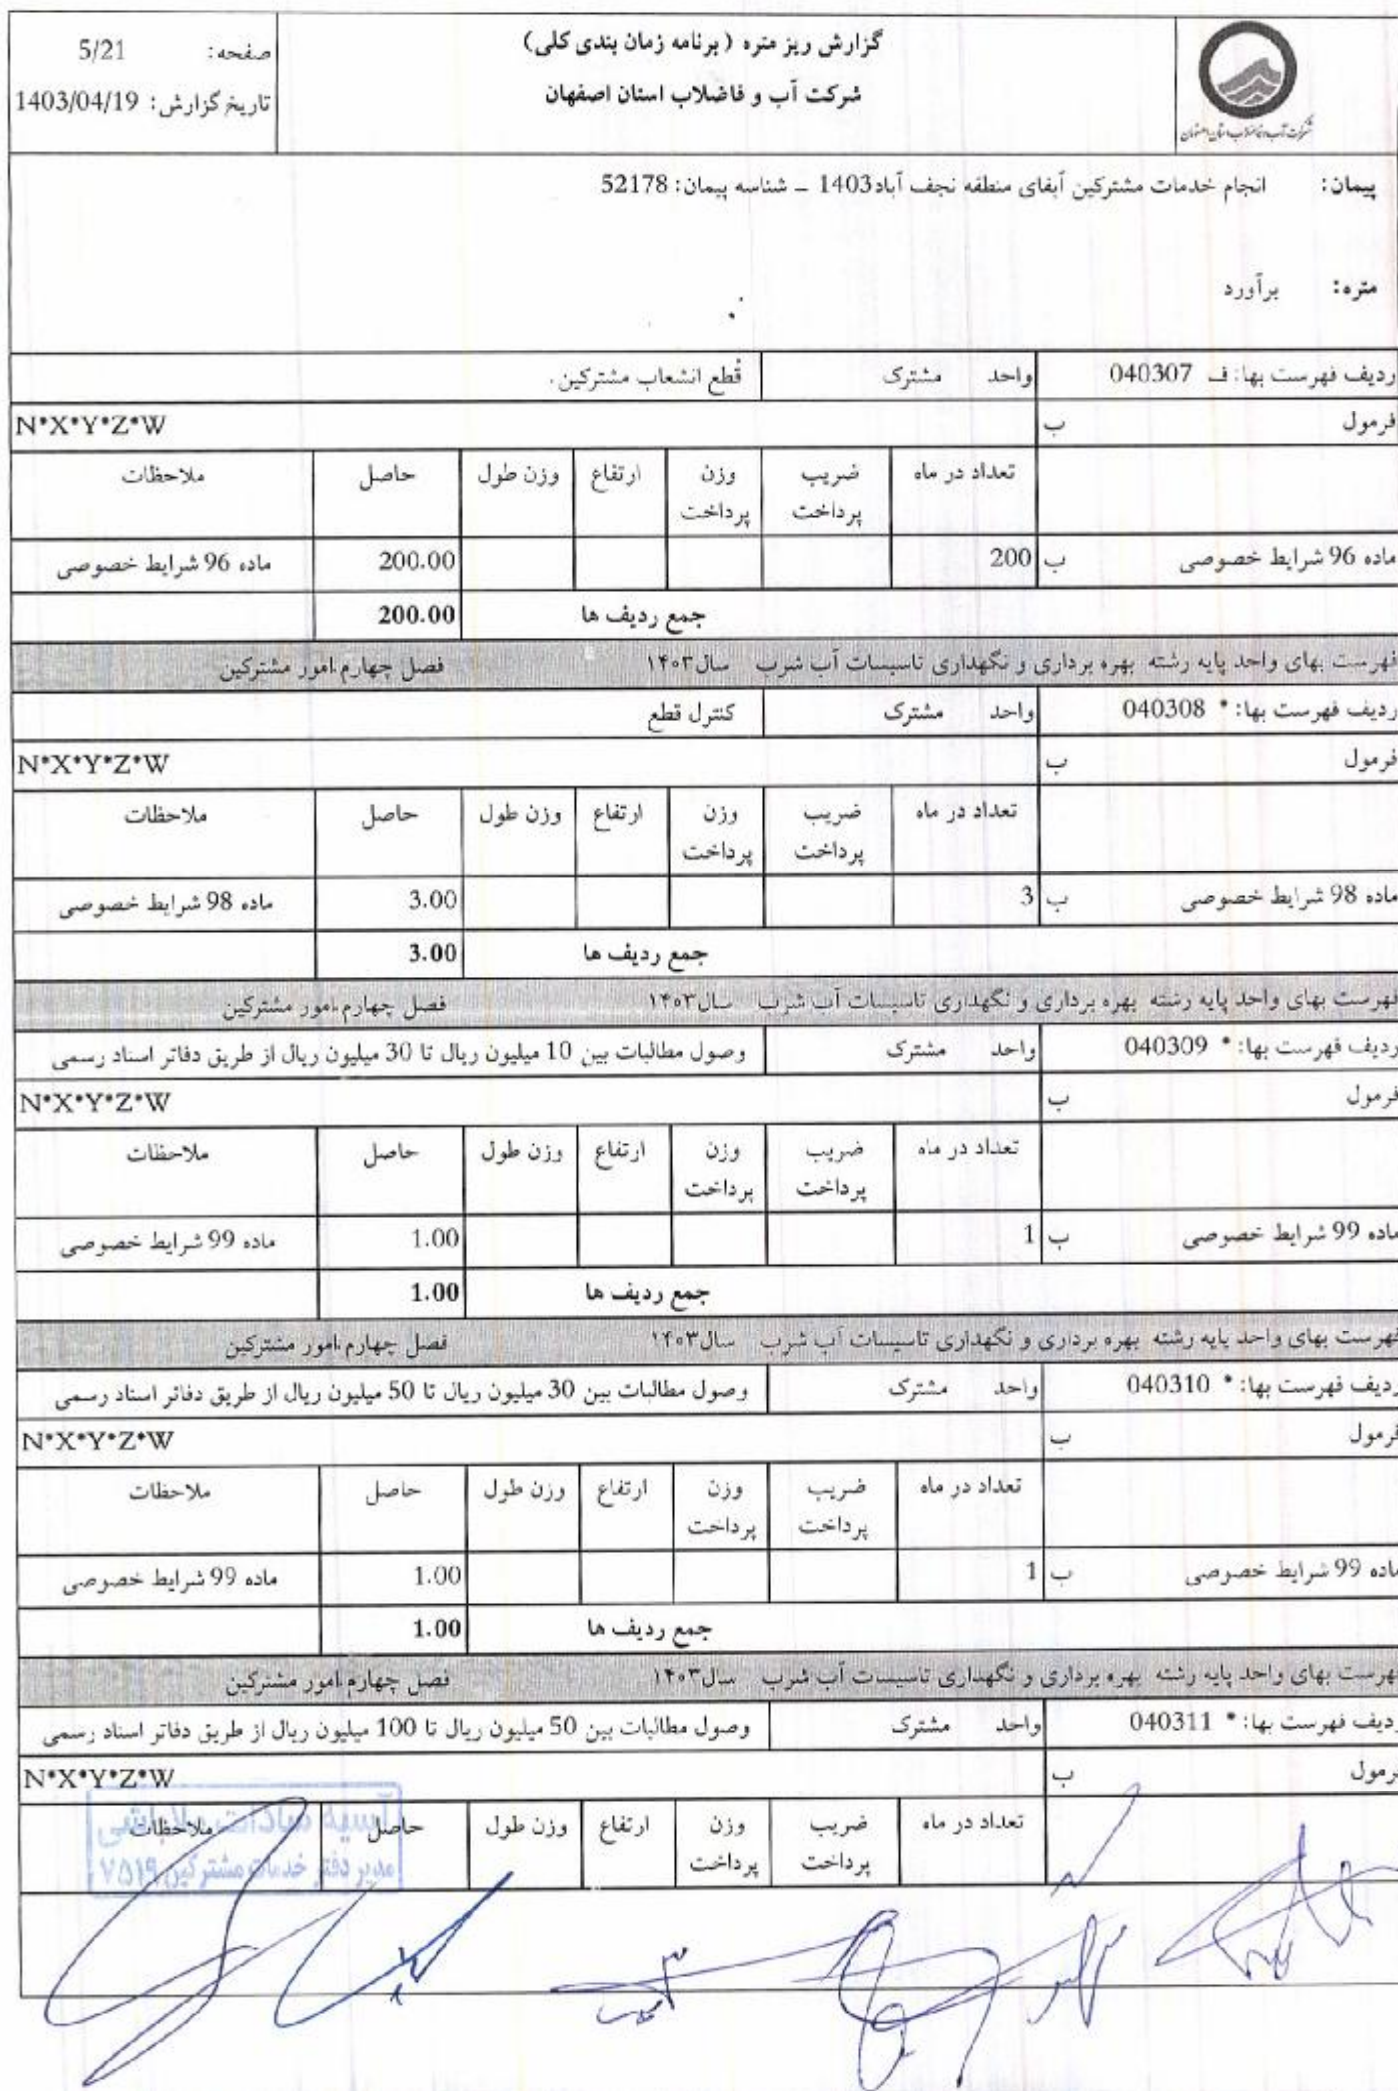 گزارش ریز متره ( برنامه زمان بندی کلی)
شرکت آب و فاضلاب استان اصفهان
صفحه: 5/21
تاریخ گزارش: 1403/04/19
شرکت آب و فاضلاب استان اصفهان
پیمان: انجام خدمات مشترکین آبفای منطقه نجف آباد1403 - شناسه پیمان: 52178
متره: برآورد
ردیف فهرست بها: ف 040307 واحد مشترک قطع انشعاب مشترکین.
فرمول ب N*X*Y*Z*W
تعداد در ماه ضریب پرداخت وزن پرداخت ارتفاع وزن طول حاصل ملاحظات
ماده 96 شرایط خصوصی ب 200 200.00 ماده 96 شرایط خصوصی
جمع ردیف ها 200.00
فهرست بهای واحد پایه رشته بهره برداری و نگهداری تاسیسات آب شرب سال۱۴۰۳ فصل چهارم.امور مشترکین
ردیف فهرست بها: * 040308 واحد مشترک کنترل قطع
فرمول ب N*X*Y*Z*W
تعداد در ماه ضریب پرداخت وزن پرداخت ارتفاع وزن طول حاصل ملاحظات
ماده 98 شرایط خصوصی ب 3 3.00 ماده 98 شرایط خصوصی
جمع ردیف ها 3.00
فهرست بهای واحد پایه رشته بهره برداری و نگهداری تاسیسات آب شرب سال۱۴۰۳ فصل چهارم.امور مشترکین
ردیف فهرست بها: * 040309 واحد مشترک وصول مطالبات بین 10 میلیون ریال تا 30 میلیون ریال از طریق دفاتر اسناد رسمی
فرمول ب N*X*Y*Z*W
تعداد در ماه ضریب پرداخت وزن پرداخت ارتفاع وزن طول حاصل ملاحظات
ماده 99 شرایط خصوصی ب 1 1.00 ماده 99 شرایط خصوصی
جمع ردیف ها 1.00
فهرست بهای واحد پایه رشته بهره برداری و نگهداری تاسیسات آب شرب سال۱۴۰۳ فصل چهارم.امور مشترکین
ردیف فهرست بها: * 040310 واحد مشترک وصول مطالبات بین 30 میلیون ریال تا 50 میلیون ریال از طریق دفاتر اسناد رسمی
فرمول ب N*X*Y*Z*W
تعداد در ماه ضریب پرداخت وزن پرداخت ارتفاع وزن طول حاصل ملاحظات
ماده 99 شرایط خصوصی ب 1 1.00 ماده 99 شرایط خصوصی
جمع ردیف ها 1.00
فهرست بهای واحد پایه رشته بهره برداری و نگهداری تاسیسات آب شرب سال۱۴۰۳ فصل چهارم.امور مشترکین
ردیف فهرست بها: * 040311 واحد مشترک وصول مطالبات بین 50 میلیون ریال تا 100 میلیون ریال از طریق دفاتر اسناد رسمی
فرمول ب N*X*Y*Z*W
تعداد در ماه ضریب پرداخت وزن پرداخت ارتفاع وزن طول حاصل ملاحظات
آسیه سادات
مدیر دفتر خدمات مشترکین ۷۵۱۹